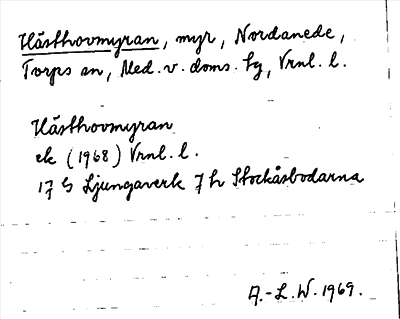 Hästhovmyran, myr, Nordanede,
Torps sn, Med. v. doms. tg, Vrnl. l.
Hästhovmyran
ek (1968) Vrnl. l.
17 G Ljungaverk 7 h Stockåsbodarna
A.-L. W. 1969.